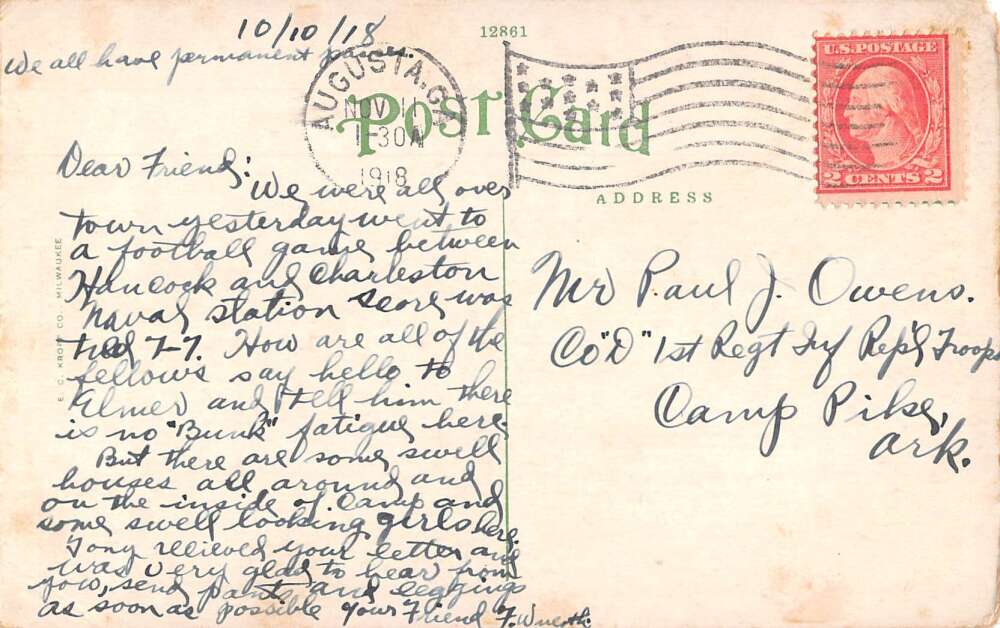 10/10/18
12861
We all have permanent
AUGUSTA, GA
NOV 11
1-30A
1918
POST CARD
U.S. POSTAGE
2 CENTS 2
ADDRESS
Dear Friend:
We were all over
town yesterday went to
a football game between
Hancock and Charleston
naval station score was
tied 7-7. How are all of the
fellows say hello to
Elmer and tell him there
is no "Bunk" fatigue here.
But there are some swell
houses all around and
on the inside of camp and
some swell looking girls here.
Tony recieved your letter and
was very glad to hear from
you, send pants and leggings
as soon as possible Your Friend F.
Mr Paul J. Owens.
Co "D" 1st Regt Inf Repl Troops
Camp Pike,
Ark.
E. C. KROPP CO., MILWAUKEE